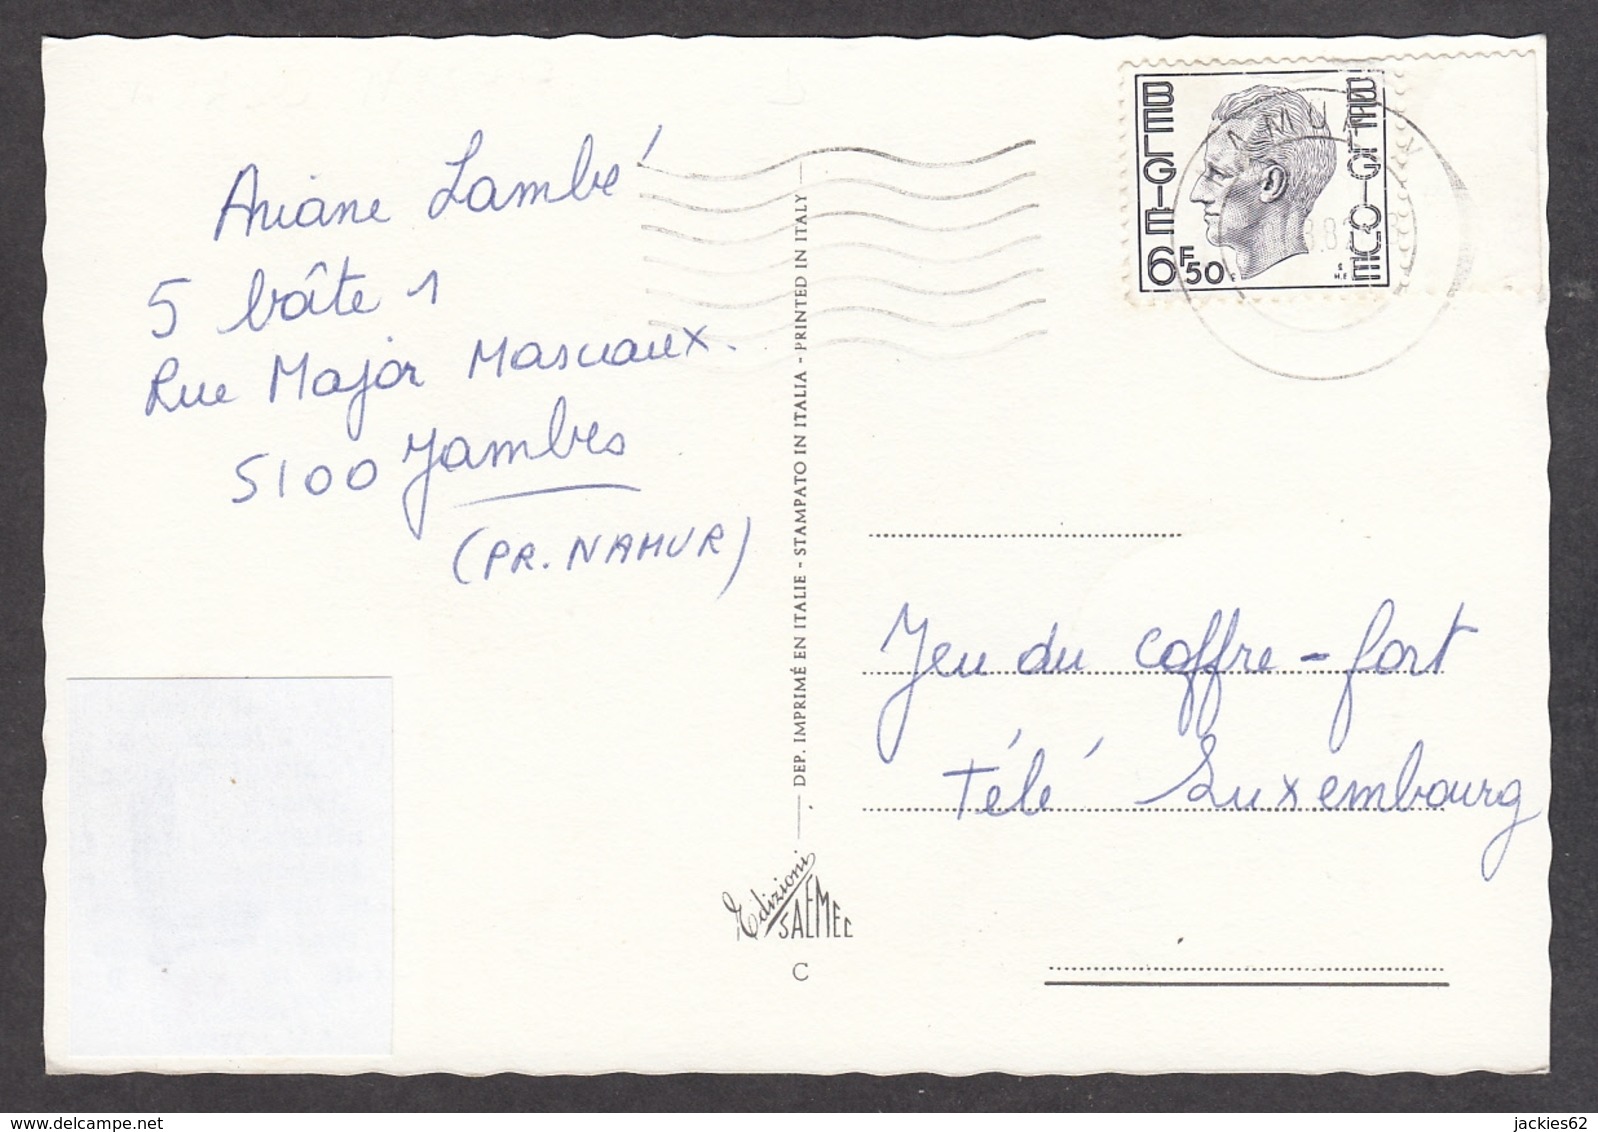 Ariane Lambé
5 boîte 1
Rue Major Mascaux.
5100 Jambes
(PR. NAMUR)
DEP. IMPRIMÉ EN ITALIE - STAMPATO IN ITALIA - PRINTED IN ITALY
Edizioni
SAEMEC
C
BELGIE
BELGIQUE
6F50
Jeu du coffre-fort
Télé Luxembourg
jackies62